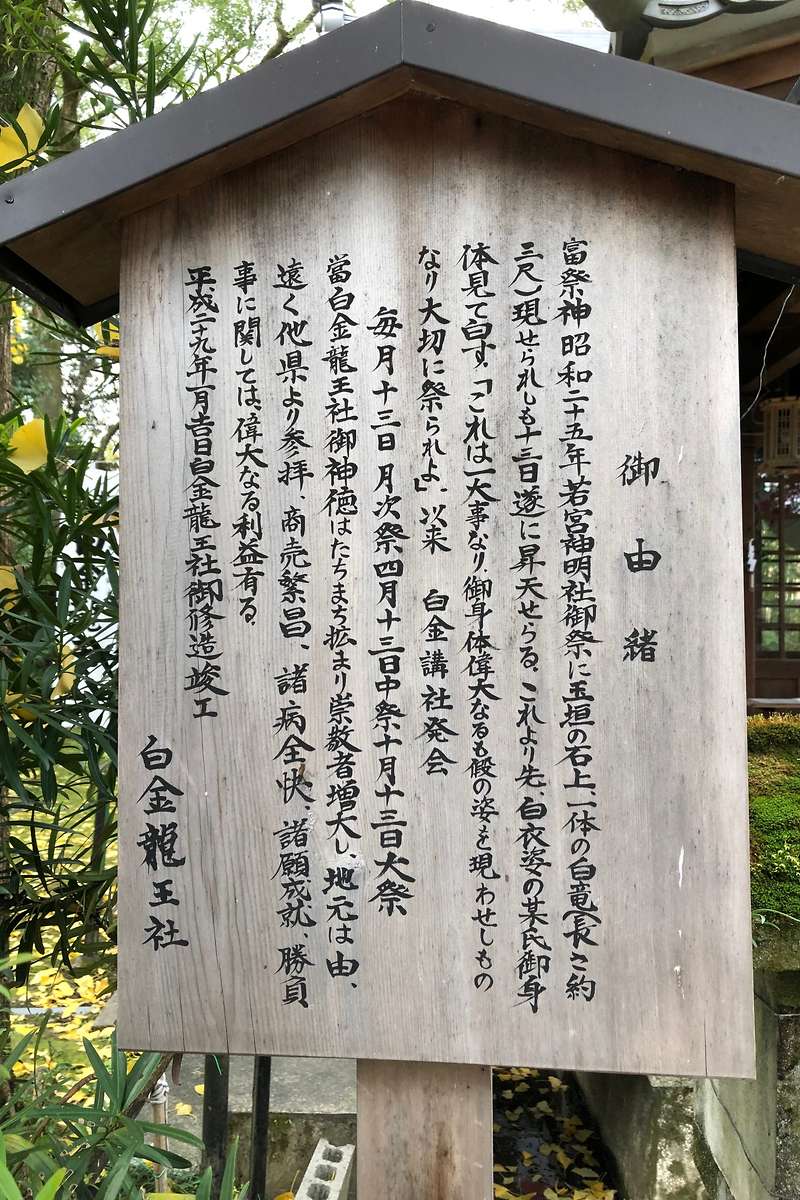 御由緒
富祭神昭和二十五年若宮神明社御祭に玉垣の石上、一体の白竜（長さ約
三尺）現せられしも十三日遂に昇天せらる。これより先、白衣姿の某氏御身
体見て白す、「これは一大事なり、御身体偉大なるも假の姿を現わせしもの
なり大切に祭られよ」、以来 白金講社発会
毎月十三日月次祭四月十三日中祭十月十三日大祭
當白金龍王社御神徳はたちまち拡まり崇敬者増大し、地元は由、
遠く他県より参拝、商売繁昌、諸病全快、諸願成就、勝負
事に関しては、偉大なる利益有る。
平成二十九年一月吉日白金龍王社御修造竣工
白金龍王社